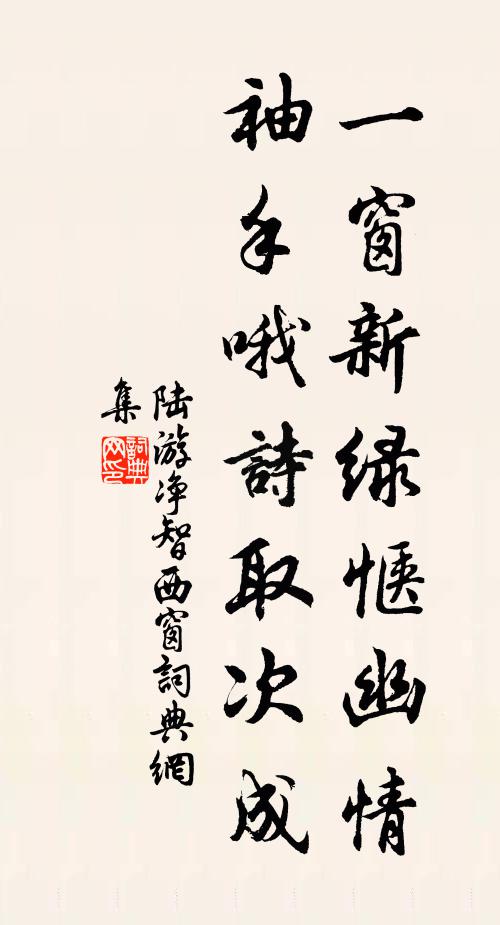 一窗新緑惬幽情
袖手哦詩取次成
陆游净智西窗詞典網
集
詞典网印